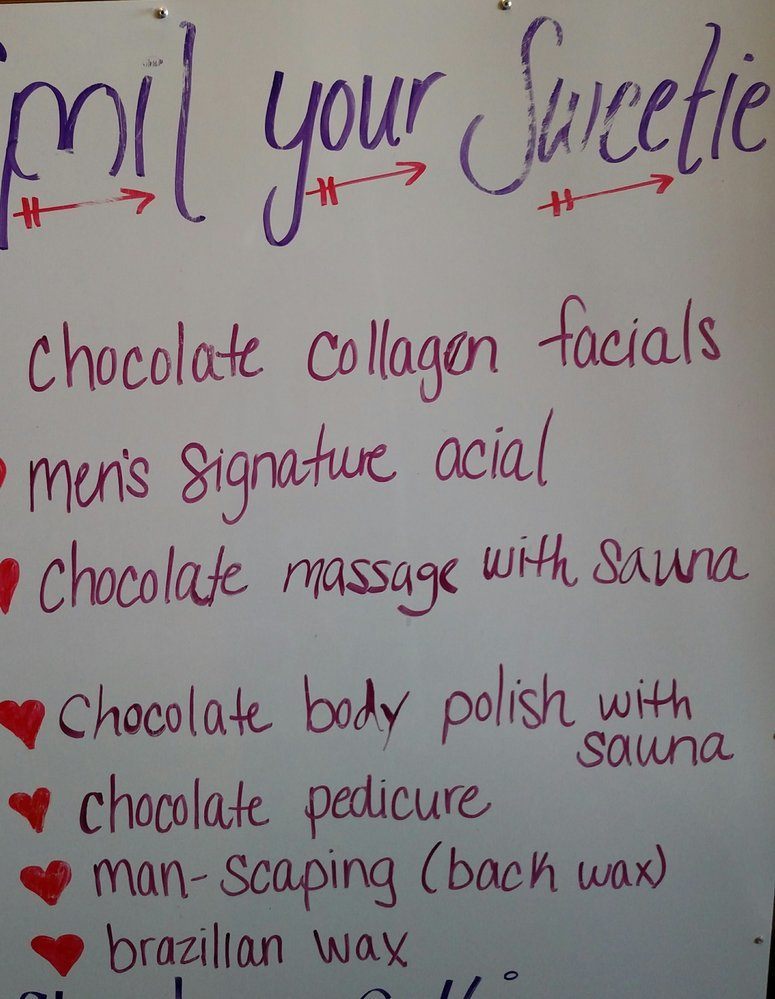 your Sweetie
chocolate collagen facials
men's signature acial
chocolate massage with sauna
chocolate body polish with
sauna
chocolate pedicure
man-scaping (back wax)
brazilian wax